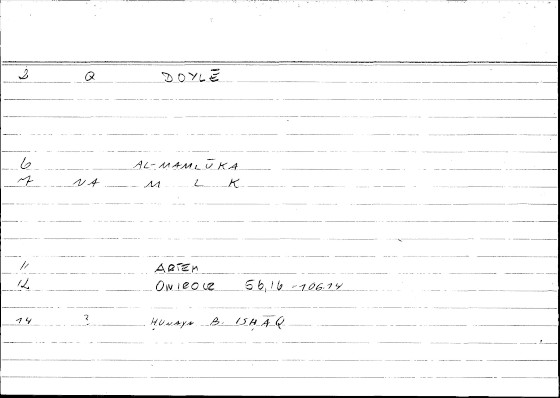 2 Q DOYLĒ
6 AL-MAMLŪKA
7 NA M L K
11 ARTEM
12 ONIROCR 56,16 - 106.14
14 ? ḤUNAYN B. ISḤĀQ